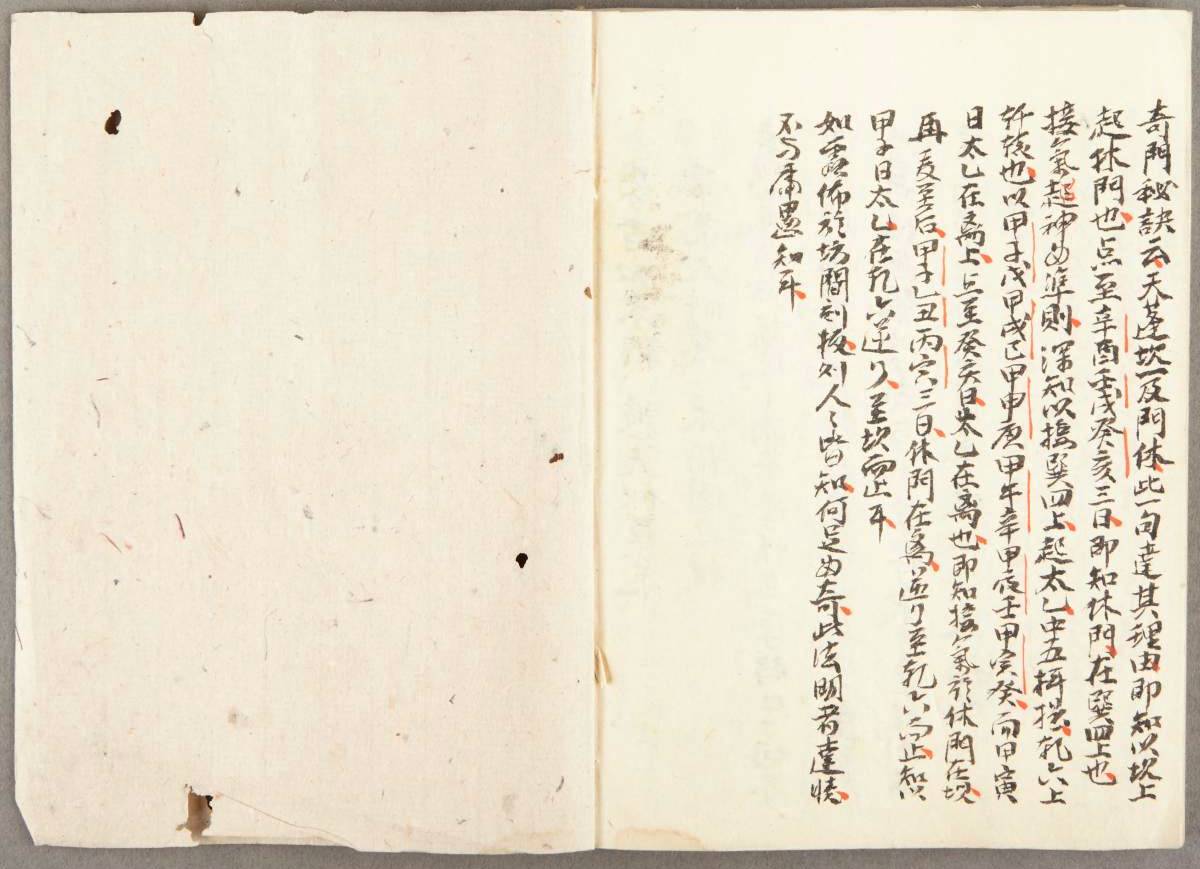 奇門秘訣云天逢坎一及門休此一句達其理由即知以坎上
起休門也点至辛酉壬戌癸亥三日即知休門在巽四上也
接氣起神為準則深知以接巽四上起太乙中五拱接乾六上
轩辕也以甲子戊甲戌己甲申庚甲午辛甲辰壬甲寅癸而甲寅
日太乙在离上点至癸亥日太乙在离也即知接氣於休門在坎
再夏至后甲子乙丑丙寅三日休門在离逆行至乾六而止知以
甲子日太乙在乾六逆行至坎而止耳
如雲佈於坊間刻板列人々皆知何足為奇此法明者達悟
不与庸愚知耳